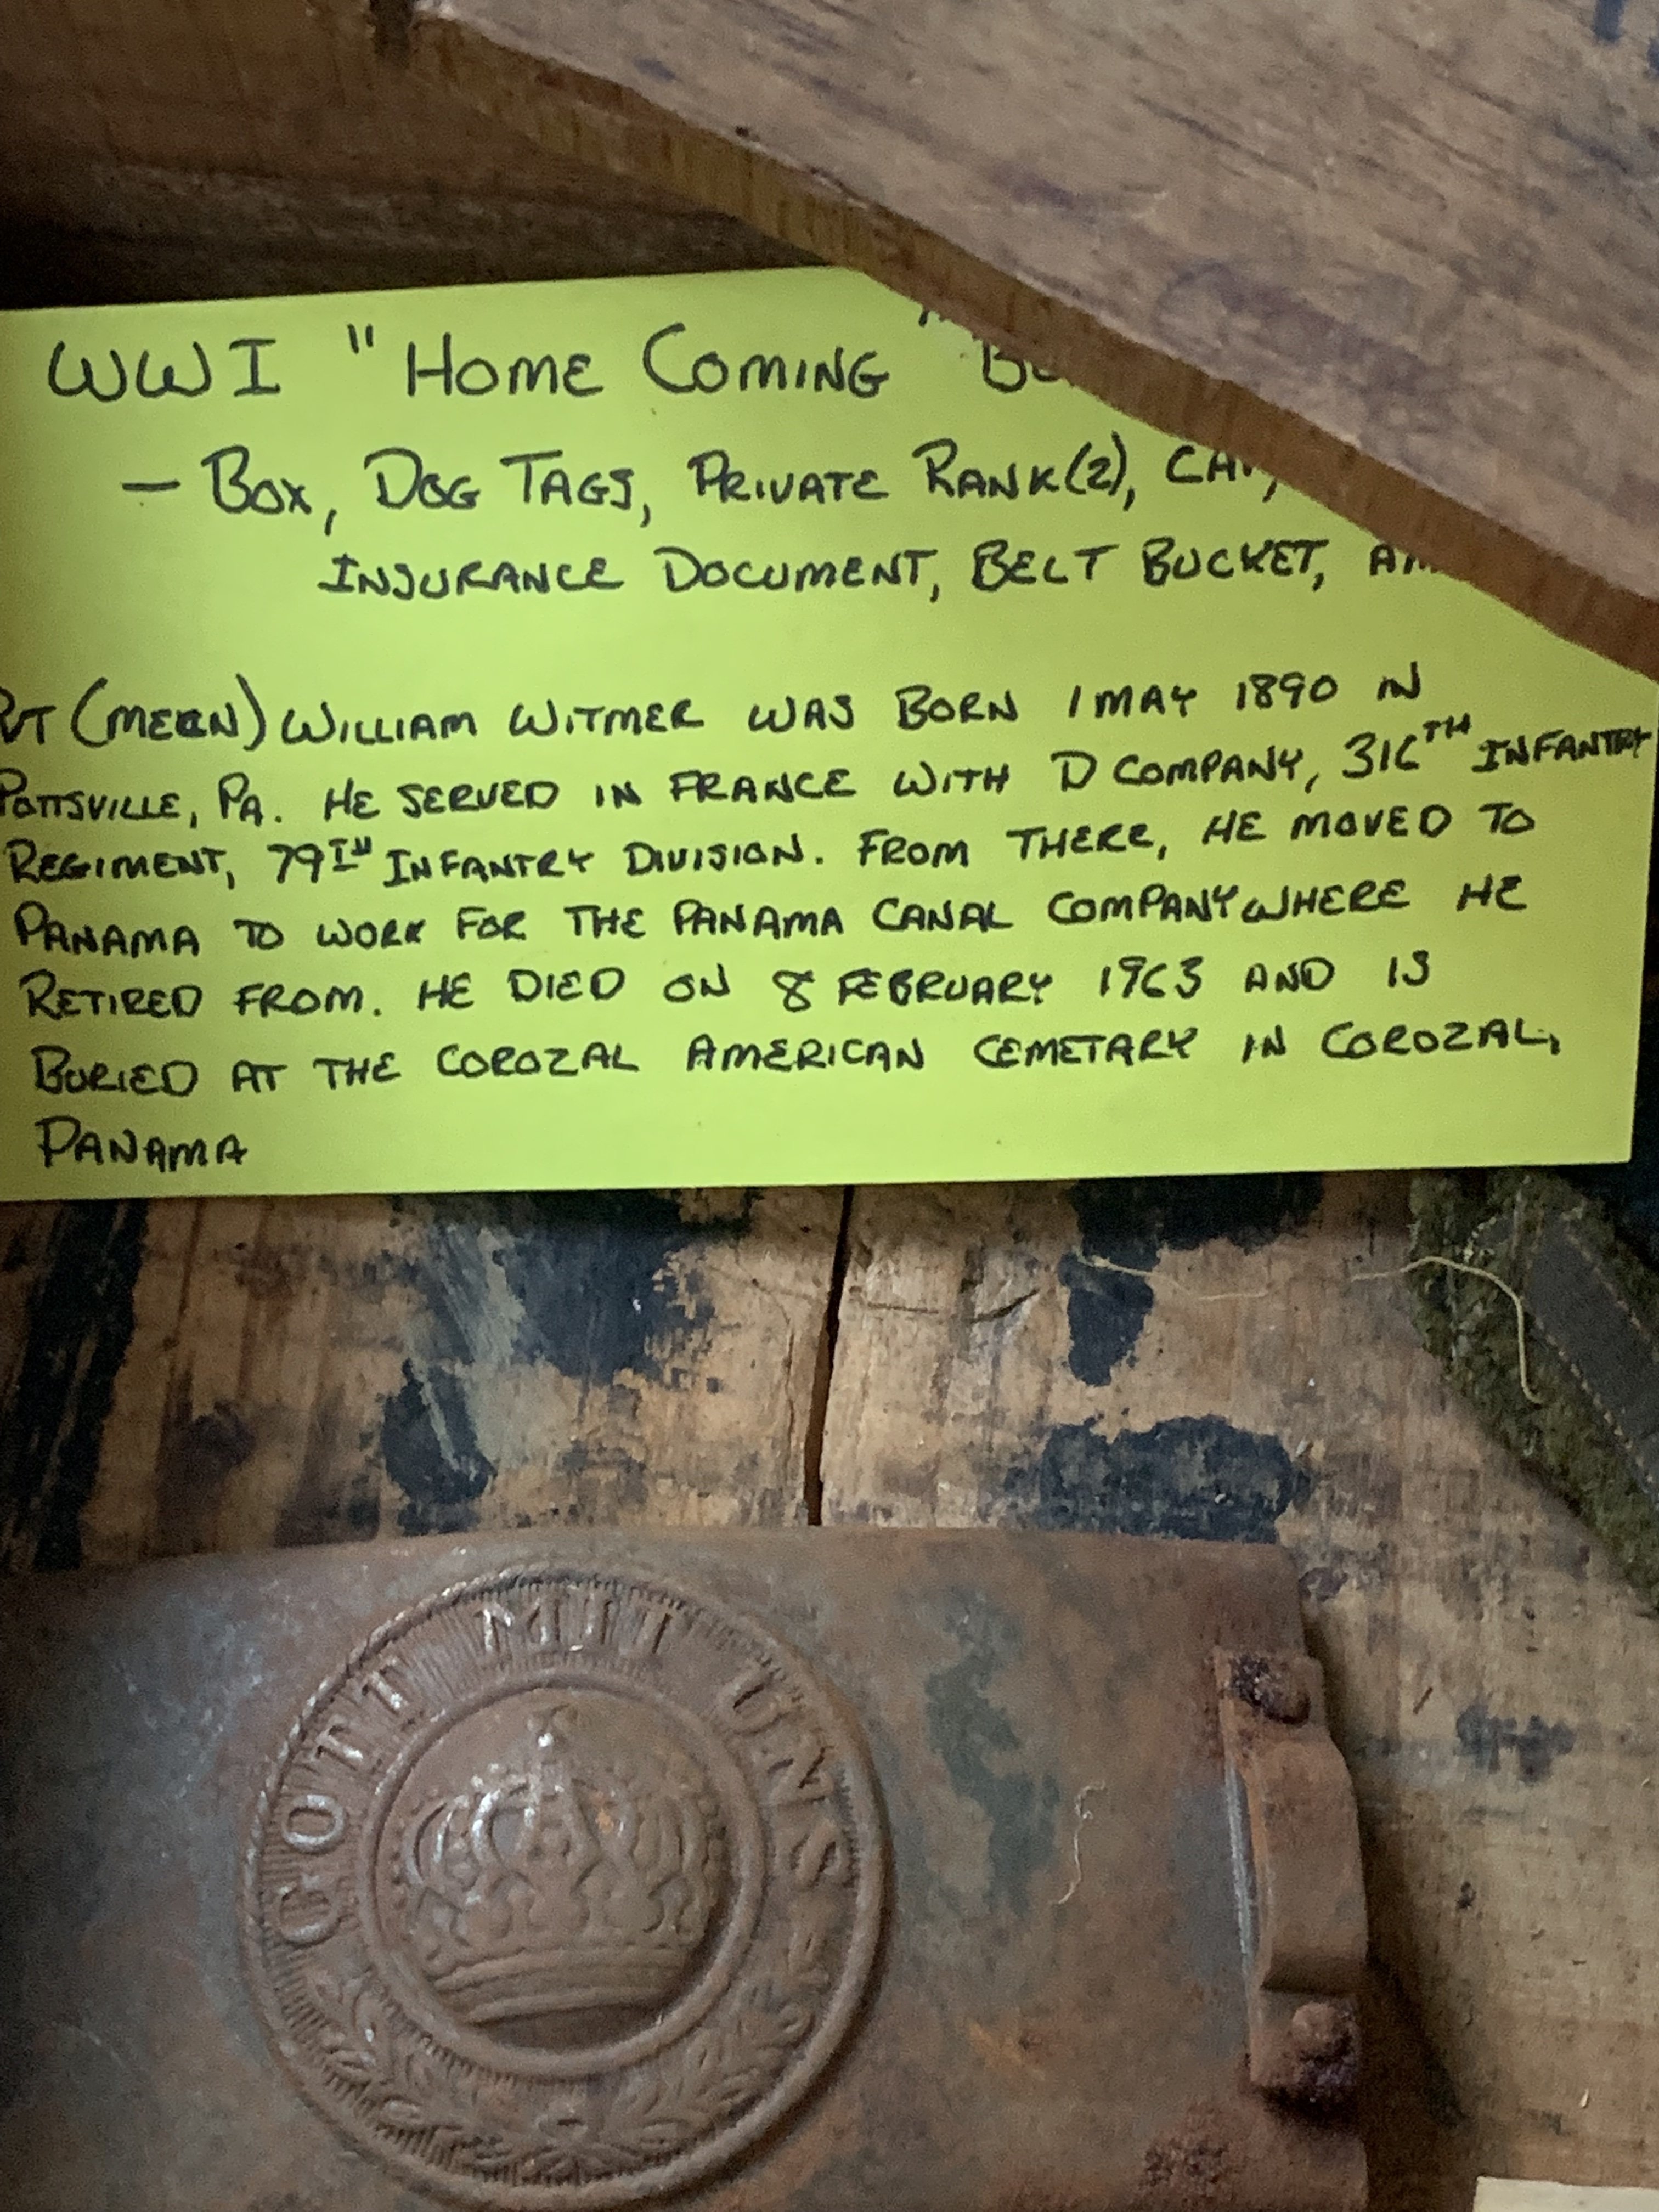 WWI "HOME COMING"
- BOX, DOG TAGS, PRIVATE RANK(2),
INSURANCE DOCUMENT, BELT BUCKET,
PVT (MECN) WILLIAM WITMER WAS BORN 1 MAY 1890 IN
POTTSVILLE, PA. HE SERVED IN FRANCE WITH D COMPANY, 316TH INFANTRY
REGIMENT, 79TH INFANTRY DIVISION. FROM THERE, HE MOVED TO
PANAMA TO WORK FOR THE PANAMA CANAL COMPANY WHERE HE
RETIRED FROM. HE DIED ON 8 FEBRUARY 1963 AND IS
BURIED AT THE COROZAL AMERICAN CEMETARY IN COROZAL,
PANAMA
GOTT MIT UNS